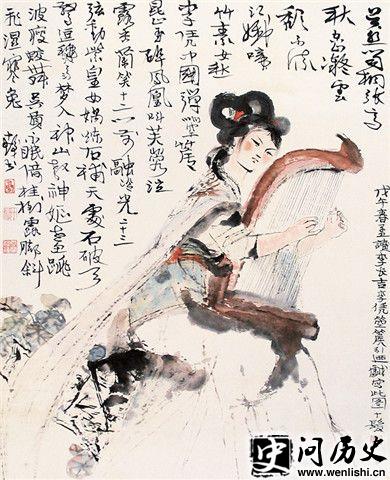 吴丝蜀桐张高
秋空凝云
颓不流
江娥啼
竹素女愁
李凭中国弹箜篌
崑玉碎凤凰叫芙蓉泣
露香兰笑十二门前融冷光二十三
弦动紫皇女娲炼石补天处石破天
惊逗秋雨梦入神山教神妪老鱼跳
波瘦蛟舞吴质不眠倚桂树露脚斜
飞湿寒兔
戊午春孟读李长吉李凭箜篌引 戏成此图十髪
问历史
www.wenlishi.cn